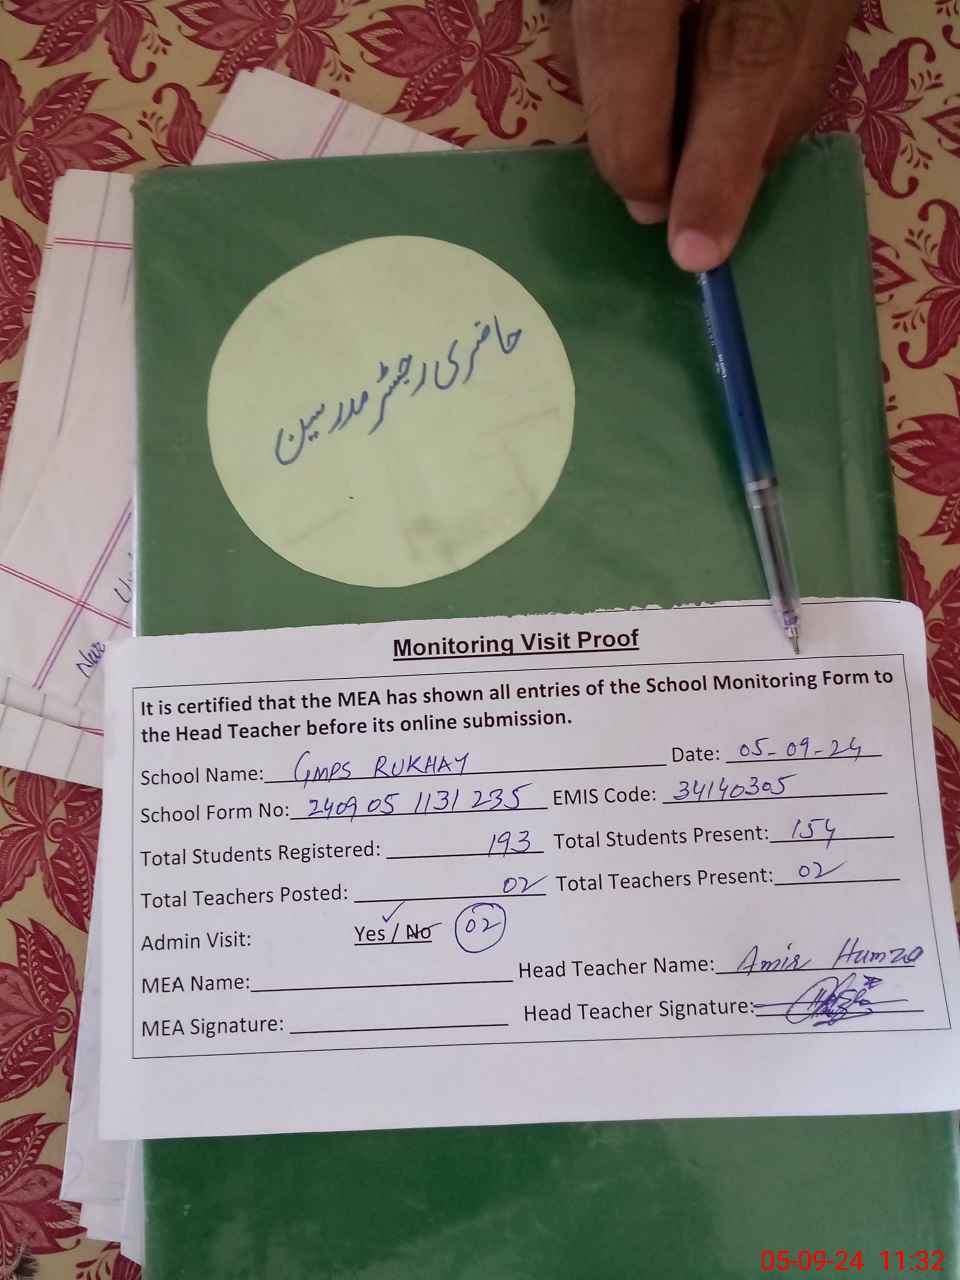 حاضری رجسٹر مدرسین
Monitoring Visit Proof
It is certified that the MEA has shown all entries of the School Monitoring Form to
the Head Teacher before its online submission.
School Name: GMPS RUKHAY Date: 05-09-24
School Form No: 2409 05 1131 235 EMIS Code: 34140305
Total Students Registered: 193 Total Students Present: 154
Total Teachers Posted: 02 Total Teachers Present: 02
Admin Visit: Yes / No 02
MEA Name: Head Teacher Name: Amir Hamza
MEA Signature: Head Teacher Signature:
05-09-24 11:32